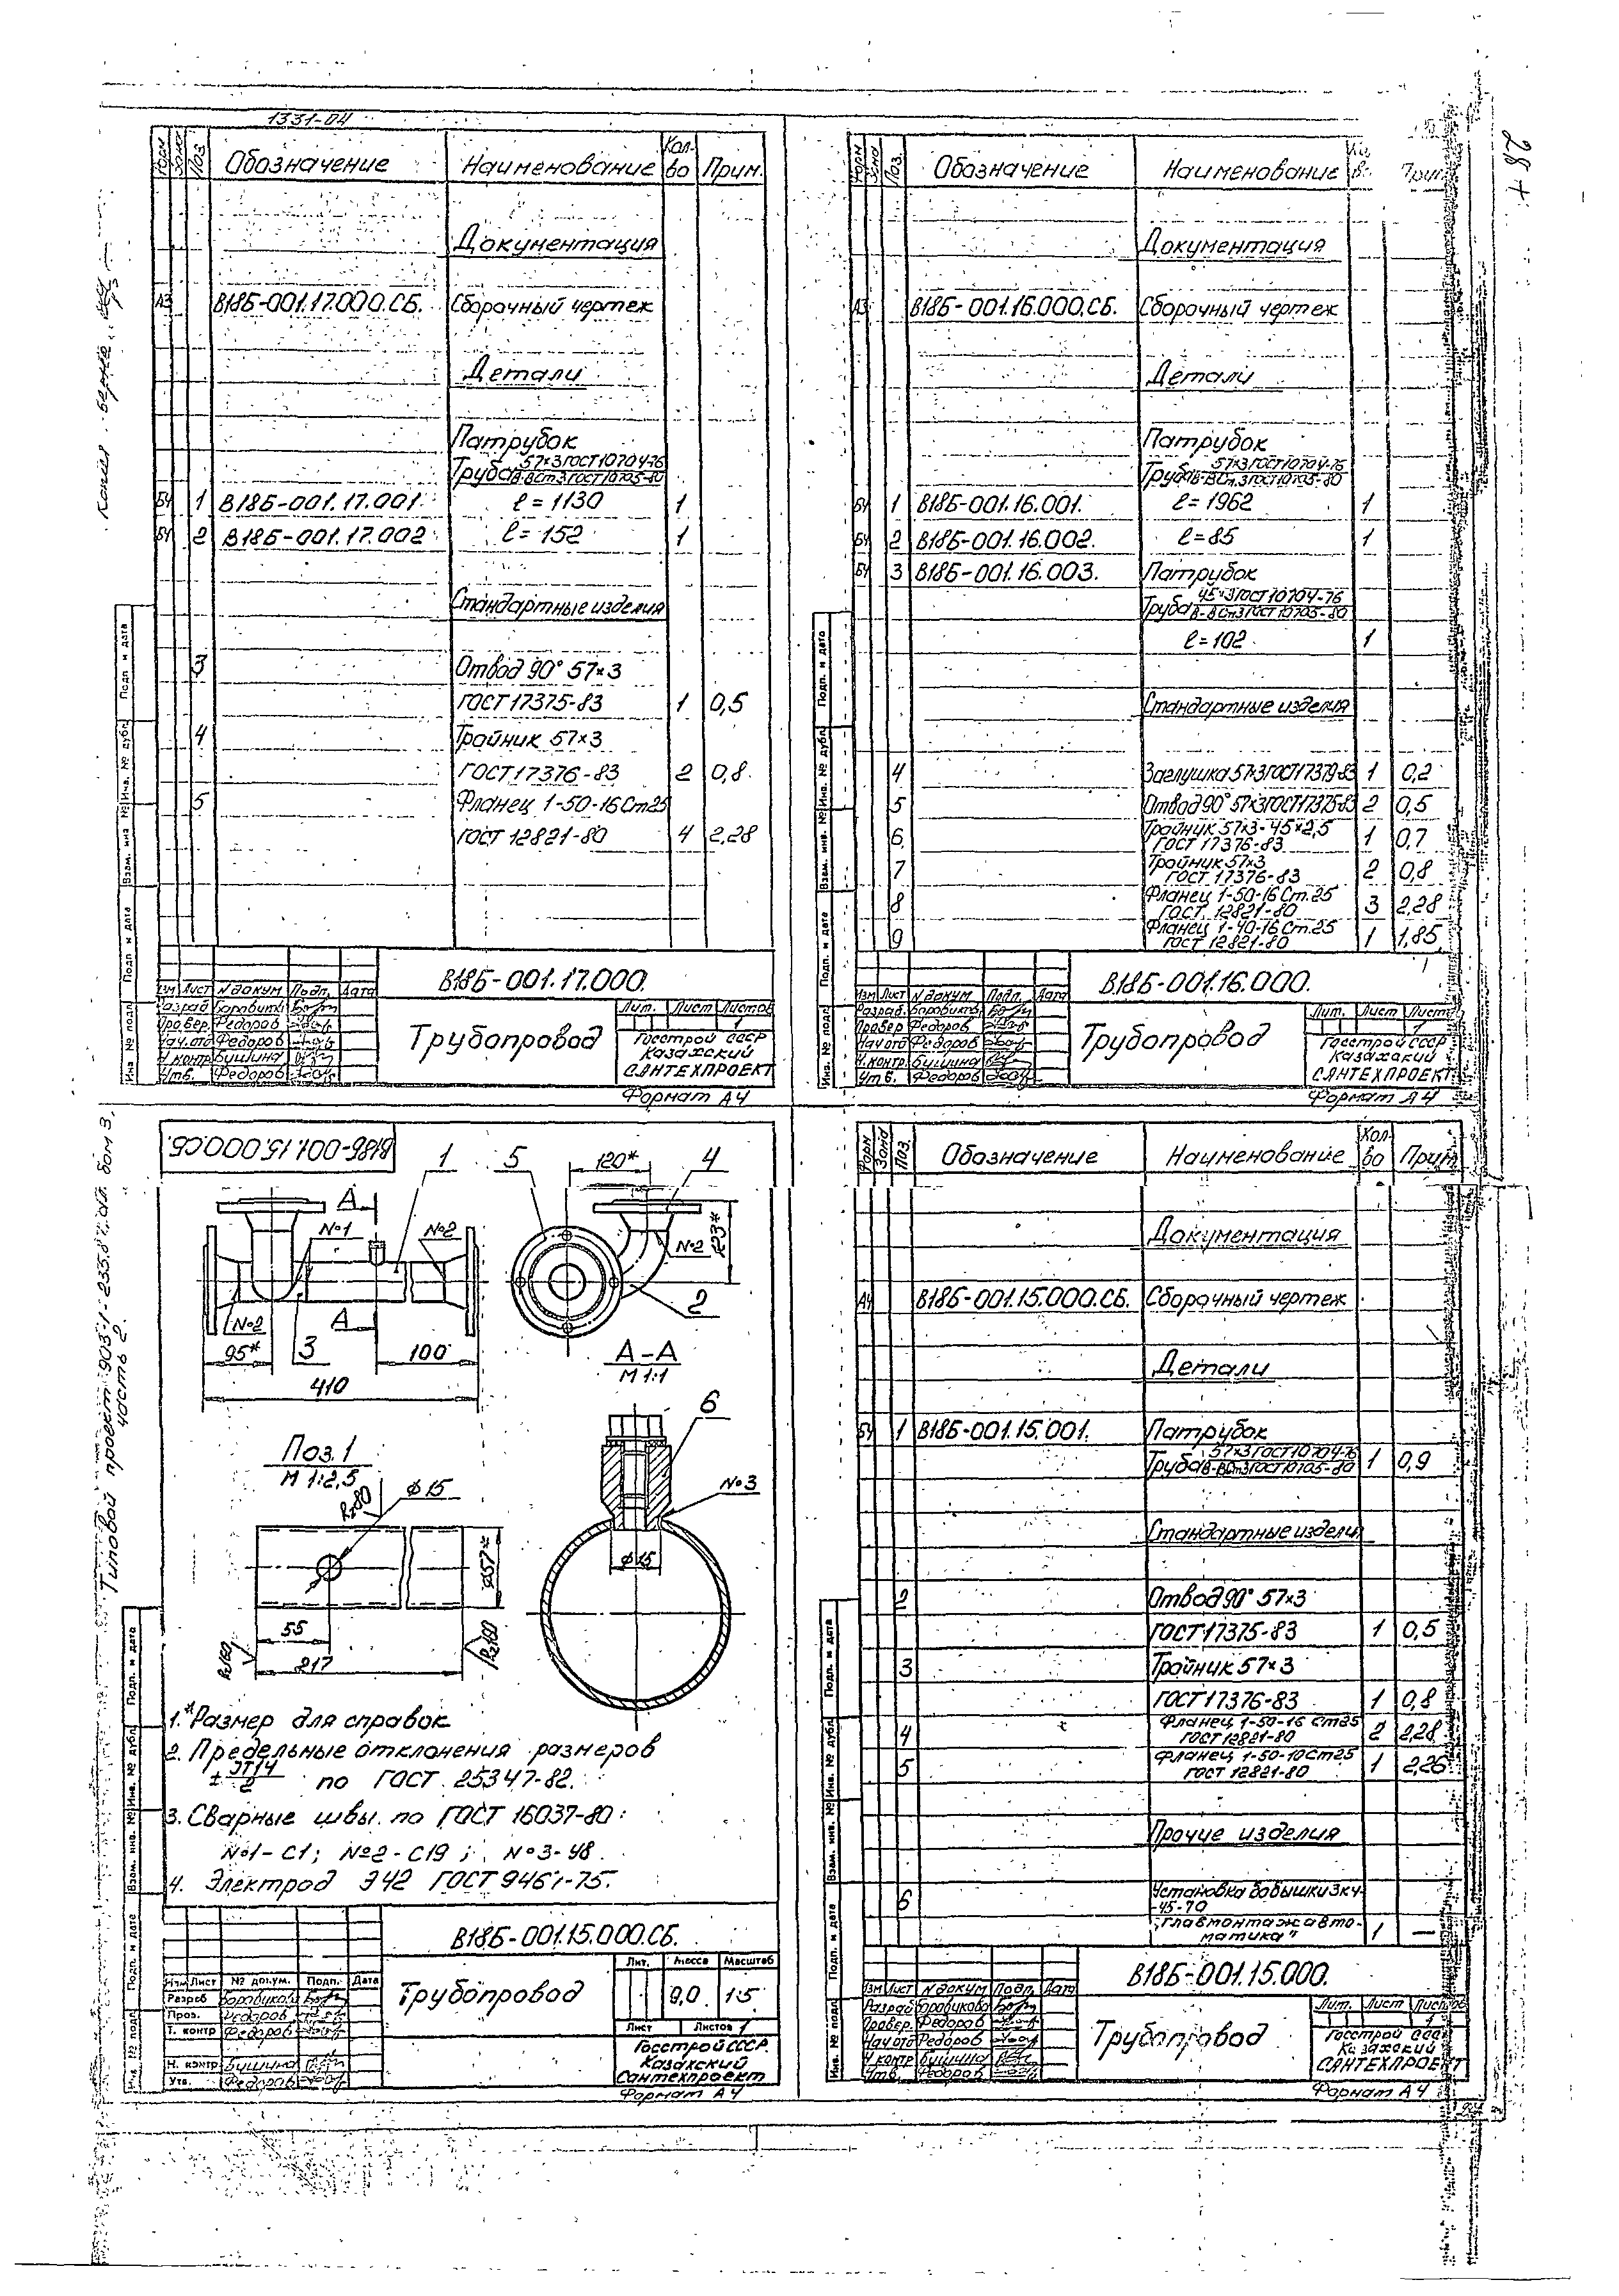 1331-04
28
Форм Зона Поз. Обозначение Наименование Кол-во Прим.
Документация
А3 В18Б-001.17.000.СБ. Сборочный чертеж
Детали
Патрубок
Труба 57×3 ГОСТ 10704-76
В-ВСт3 ГОСТ 10705-80
БЧ 1 В18Б-001.17.001. ℓ=1130 1
БЧ 2 В18Б-001.17.002 ℓ=152 1
Стандартные изделия
3 Отвод 90° 57×3
ГОСТ 17375-83 1 0,5
4 Тройник 57×3
ГОСТ 17376-83 2 0,8
5 Фланец 1-50-16 Ст25
ГОСТ 12821-80 4 2,28
В18Б-001.17.000.
Изм Лист N докум Подп. Дата
Разраб
Провер. Федоров
Нач.отд Федоров
Н.контр Бушина
Утв. Федоров
Трубопровод
Лит. Лист Листов
1
Госстрой СССР
Казахский
САНТЕХПРОЕКТ
Формат А4
Подп. и дата
Инв. № дубл
Взам. инв. №
Подп. и дата
Инв. № подл
Форм Зона Поз. Обозначение Наименование
Документация
А3 В18Б-001.16.000.СБ. Сборочный чертеж
Детали
Патрубок
Труба 57×3 ГОСТ 10704-76
В-ВСт.3 ГОСТ 10705-80
БЧ 1 В18Б-001.16.001. ℓ=1962 1
БЧ 2 В18Б-001.16.002. ℓ=85 1
БЧ 3 В18Б-001.16.003. Патрубок
Труба 45×3 ГОСТ 10704-76
В-ВСт3 ГОСТ 10705-80
ℓ=102 1
Стандартные изделия
4 Заглушка 57×3 ГОСТ 17379-83 1 0,2
5 Отвод 90° 57×3 ГОСТ 17375-83 2 0,5
6 Тройник 57×3-45×2,5
ГОСТ 17376-83 1 0,7
7 Тройник 57×3
ГОСТ 17376-83 2 0,8
8 Фланец 1-50-16 Ст.25
ГОСТ 12821-80 3 2,28
9 Фланец 1-40-16 Ст.25
ГОСТ 12821-80 1 1,85
В18Б-001.16.000.
Изм Лист N докум Подп. Дата
Разраб.
Провер Федоров
Нач отд Федоров
Н.контр. Бушина
Утв. Федоров
Трубопровод
Лит. Лист Листов
1
Госстрой СССР
Казахский
САНТЕХПРОЕКТ
Формат А4
Подп. и дата
Инв. № дубл
Взам. инв. №
Подп. и дата
Инв. № подл
В18Б-001.15.000.СБ.
1 5 120* 4
А №1 №2 №2 123*
№2 А 2
95* 3 100
410
А-А
М 1:1
Поз.1
М 1:2,5
Rz80 ϕ15
6
№3
ϕ57*
ϕ15
55
217
Rz160 Rz160
1.*Размер для справок
2. Предельные отклонения размеров
± JT14/2 по ГОСТ 25347-82.
3. Сварные швы по ГОСТ 16037-80:
№1-С1; №2-С19; №3-У8.
4. Электрод Э42 ГОСТ 9467-75.
В18Б-001.15.000.СБ.
Изм Лист № докум. Подп. Дата
Разраб Боровикова
Пров. Федоров
Т. контр Федоров
Н. контр Бушина
Утв. Федоров
Трубопровод
Лит. Масса Масштаб
9,0 1:5
Лист Листов 1
Госстрой СССР
Казахский
Сантехпроект
Формат А4
Подп. и дата
Инв. № дубл
Взам. инв. №
Подп. и дата
Инв. № подл
Форм Зона Поз. Обозначение Наименование Кол-во Прим
Документация
А4 В18Б-001.15.000.СБ. Сборочный чертеж
Детали
БЧ 1 В18Б-001.15.001. Патрубок
Труба 57×3 ГОСТ 10704-76
В-ВСт3 ГОСТ 10705-80 1 0,9
Стандартные изделия
2 Отвод 90° 57×3
ГОСТ 17375-83 1 0,5
3 Тройник 57×3
ГОСТ 17376-83 1 0,8
4 Фланец 1-50-16 Ст25
ГОСТ 12821-80 2 2,28
5 Фланец 1-50-10 Ст25
ГОСТ 12821-80 1 2,26
Прочие изделия
6 Установка бобышки ЗК4-
-45-70
"Главмонтажавто-
матика" 1 —
В18Б-001.15.000.
Изм Лист N докум Подп. Дата
Разраб Боровикова
Провер. Федоров
Нач отд Федоров
Н контр Бушина
Утв. Федоров
Трубопровод
Лит. Лист Листов
1
Госстрой СССР
Казахский
САНТЕХПРОЕКТ
Формат А4
Подп. и дата
Инв. № дубл
Взам. инв. №
Подп. и дата
Инв. № подл
Типовой проект 903-1-235.87
часть 2.